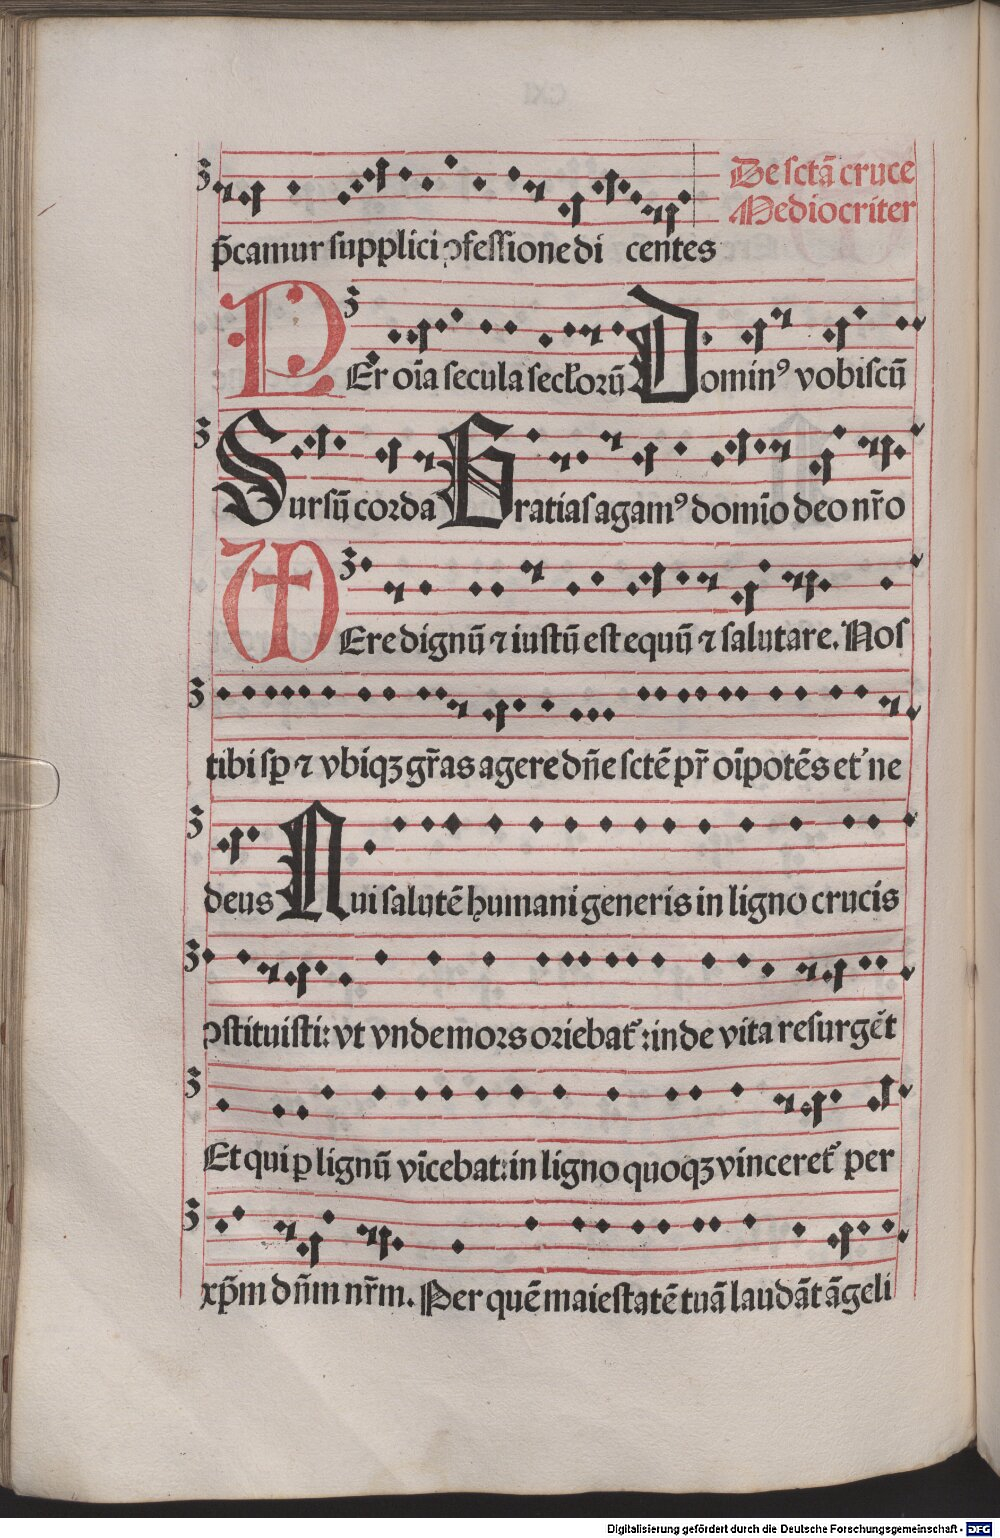 De sctā cruce
Mediocriter
p̄camur supplici ↄfessione di centes
PEr oīa secula secłorū Dominꝰ vobiscū
Sursū corda Gratias agamꝰ domīo deo nr̄o
VEre dignū ⁊ iustū est equū ⁊ salutare. Nos
tibi sꝑ ⁊ vbiqꝫ gr̄as agere dn̄e sctē pr̄ oīpotēs et' ne
deus Qui salutē humani generis in ligno crucis
ↄstituisti: vt vnde mors oriebat᷑: inde vita resurgēt
Et qui ꝑ lignū vīcebat: in ligno quoqꝫ vinceret᷑ per
xp̄m dn̄m nr̄m. Per quē maiestatē tuā laudāt āgeli
Digitalisierung gefördert durch die Deutsche Forschungsgemeinschaft - DFG